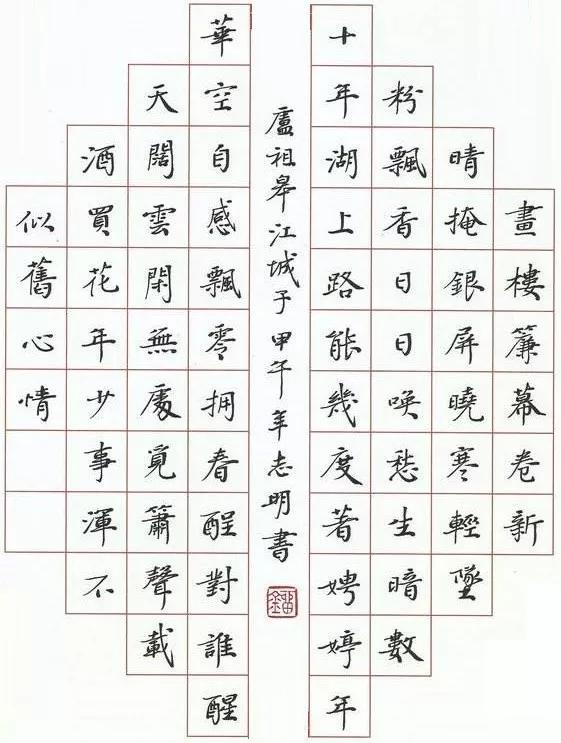 畫樓簾幕卷新
晴掩銀屏曉寒輕墜
粉飄香日日喚愁生暗數
十年湖上路能幾度著娉婷年
盧祖皋江城子甲午年志明書
華空自感飄零拥春酲對誰醒
天闊雲閑無處覓簫聲載
酒買花年少事渾不
似舊心情